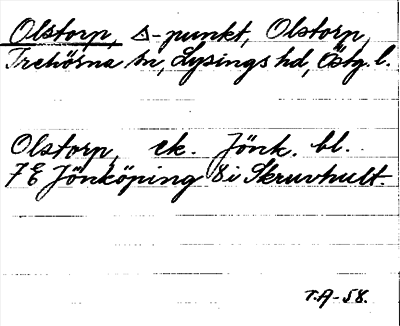 Olstorp, Δ-punkt, Olstorp,
Trehörna sn, Lysings hd, Östg. l.
Olstorp, ek. Jönk. bl.
7E Jönköping 8i Skruvhult.
T.A-58.